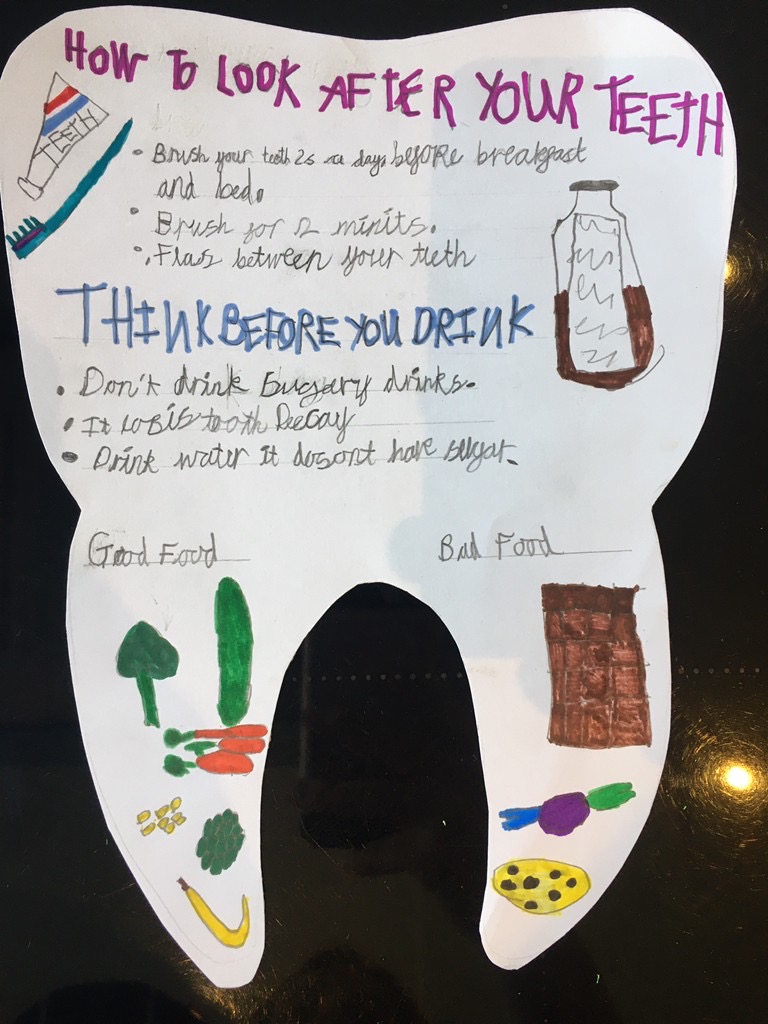 HOW TO LOOK AFTER YOUR TEETH
TEETH
• Brush your teeth 2s a days before breakfast
and bed.
• Brush for 2 minits.
• Flas between your teeth
THINK BEFORE YOU DRINK
• Don't drink sugary drinks.
• It tooth Decay
• Drink water it dosont have sugar.
Good Food
Bad Food